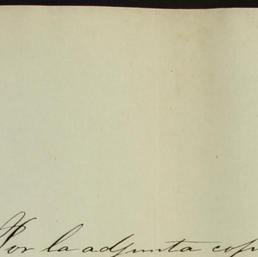 Por la adjunta cop